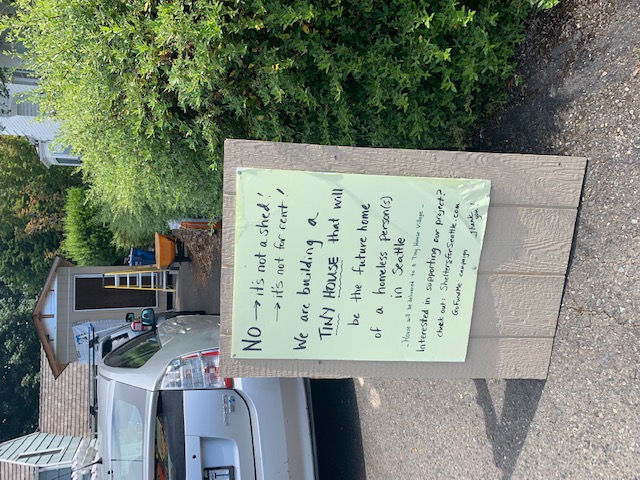 NO → it's not a shed!
→ it's not for rent!
We are building a
TINY HOUSE that will
be the future home
of a homeless person(s)
in Seattle
- House will be delivered to a Tiny House Village -
Interested in supporting our project?
check out: SheltersforSeattle.com
GoFundMe campaign
Thank
you!